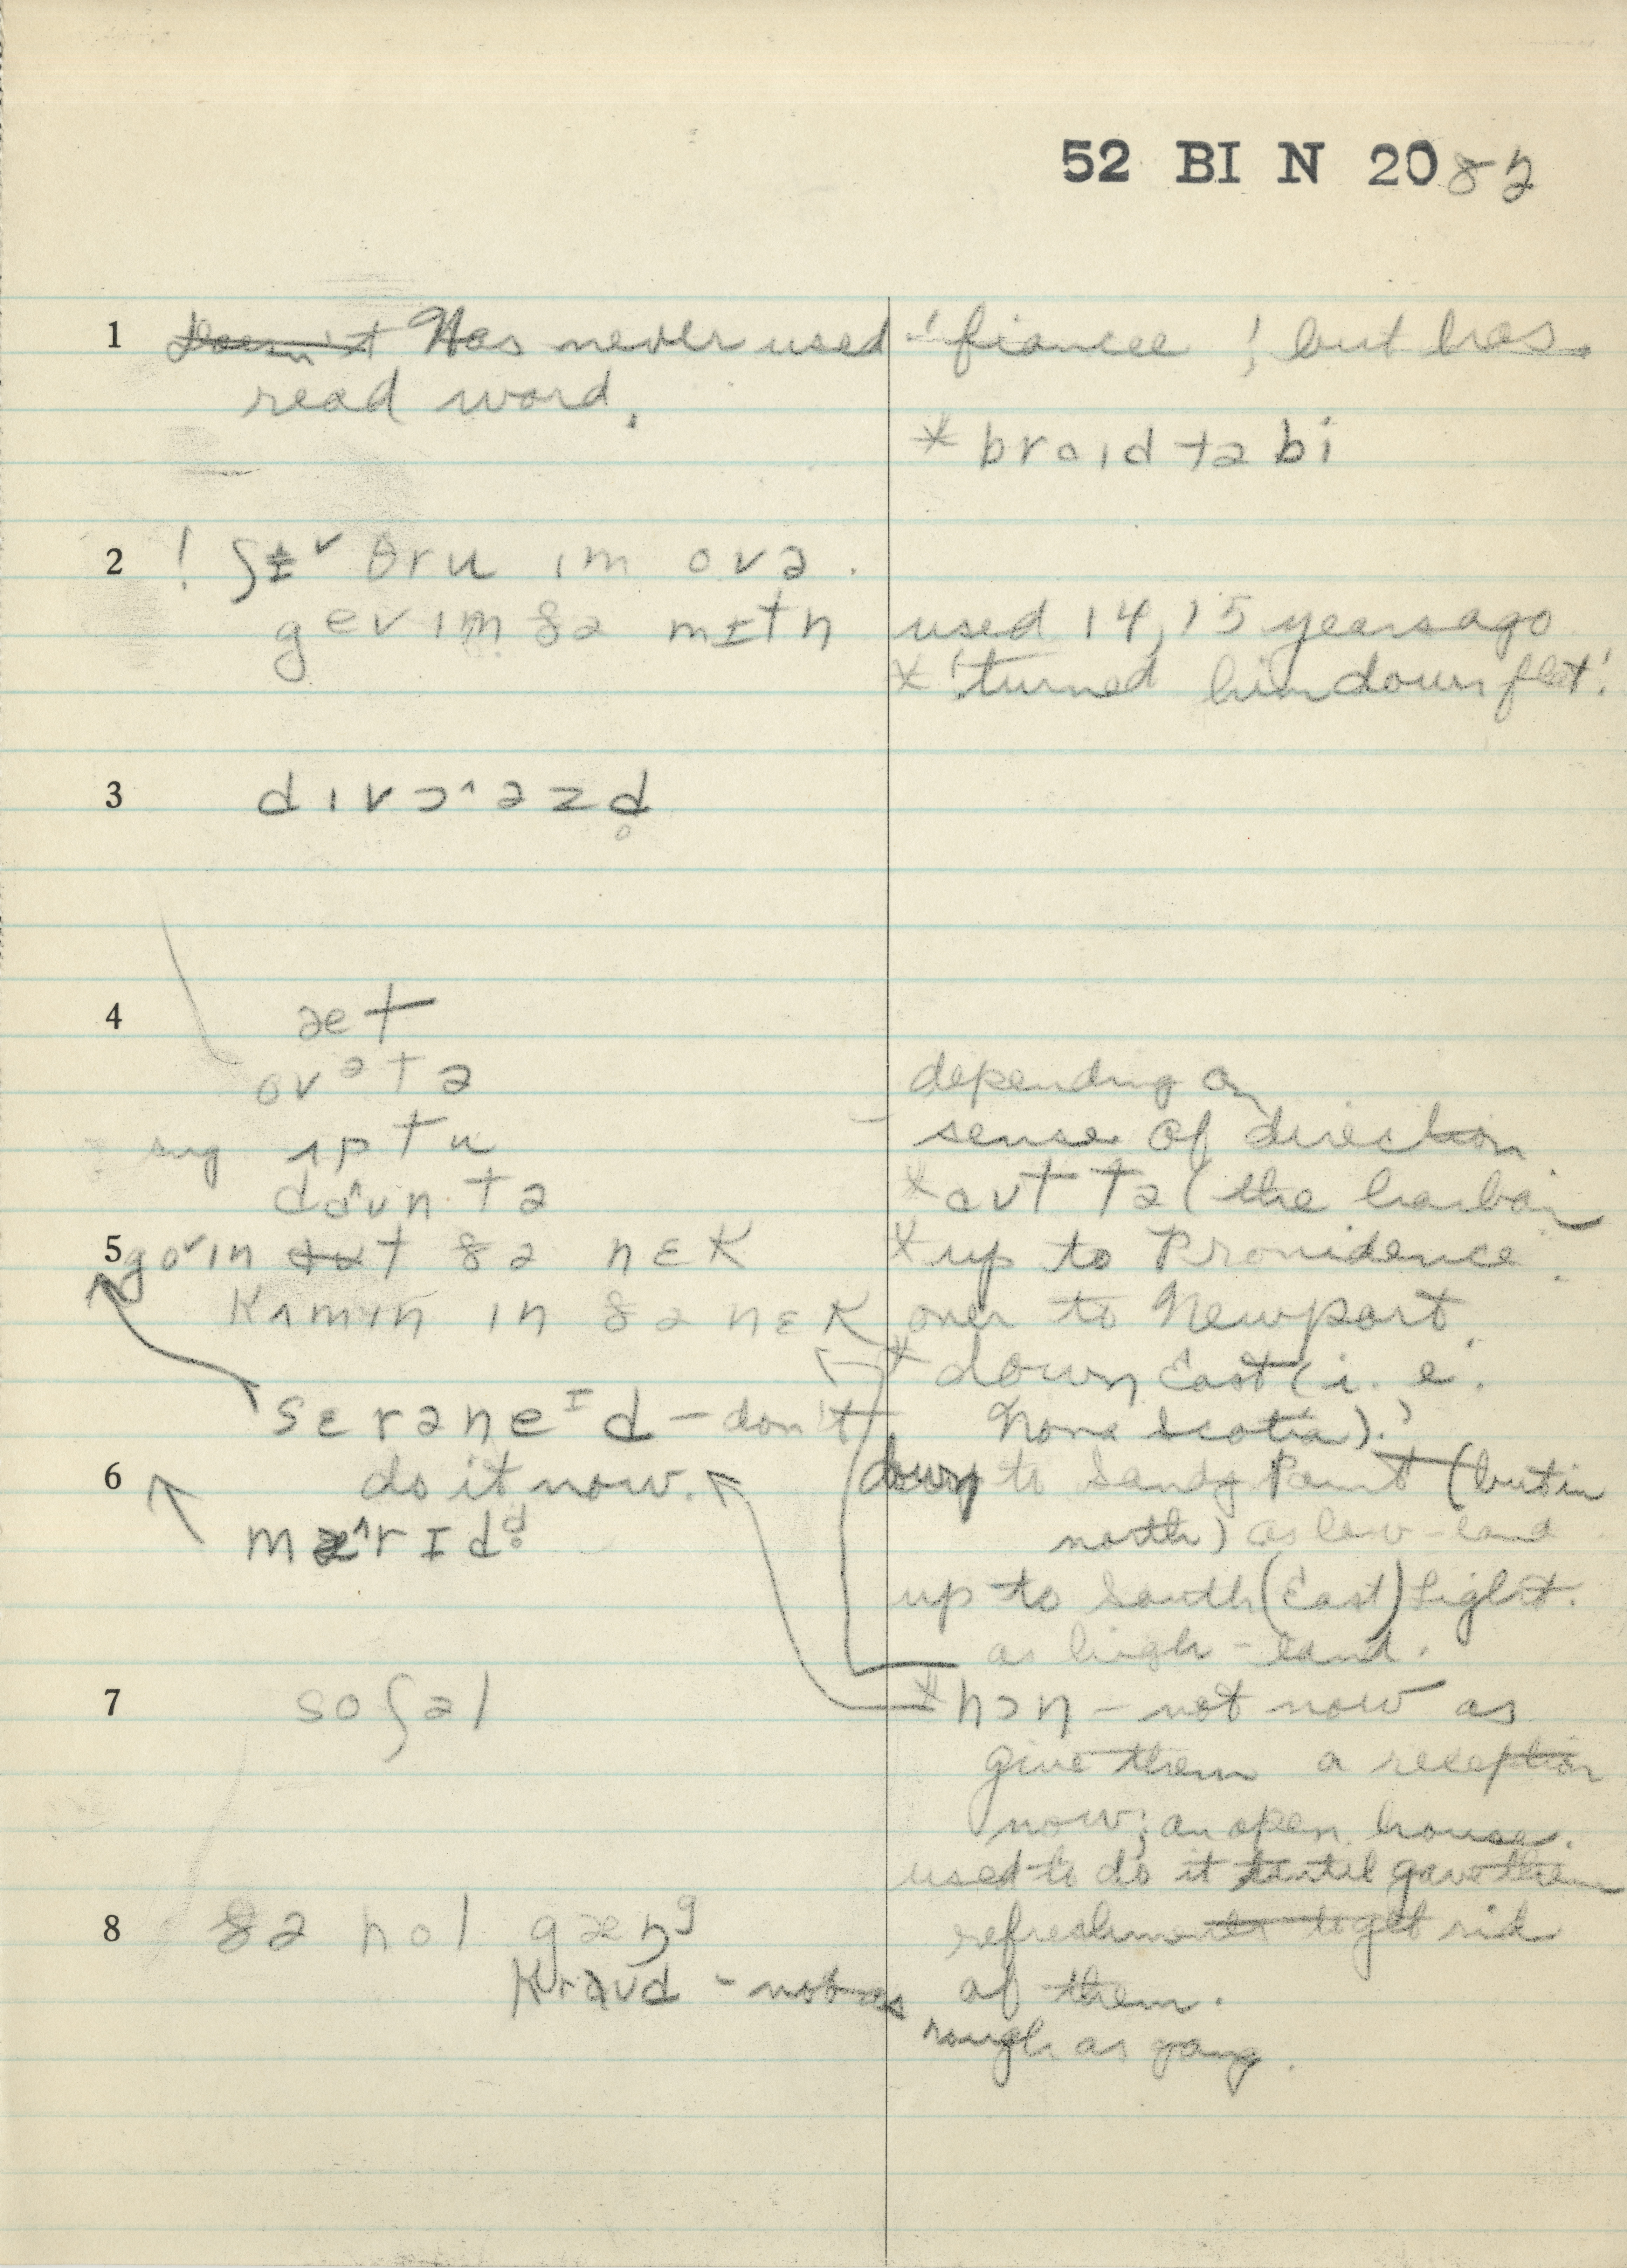 52 BI N 2082
1 Doesn't Has never used 'fiancee', but has
read word.
* braɪd tə bi
2 ! ʃɨ˅ θru ɪm ovə.
gev ɪm ðə mɪtn
used 14, 15 years ago
* 'turned him down flat'.
3 dɪvɔ˄əzd̥
4 æt
ovətə
sug ʌptu
da˄ʊn tə
depending on
sense of direction
* aʊt tə (the harbor
5 go˅ɪn ðə nɛk
kʌmɪn ɪn ðə nɛk
* up to Providence.
over to Newport.
* down East (i.e.
Nova Scotia).'
sɛrəneɪd – don't
do it now.
down to Sandy Point (but in
north) as low-land
6 mæ˄rɪdd̥
up to South (East) Light.
as high-land.
7 soʃəl
* hɔn – not now as
give them a reception
now; an open house.
used to do it until gave them
refreshments to get rid
of them.
8 ðə hol gæŋg
kraʊd – not as
rough as gang.